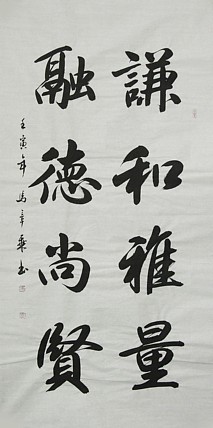 謙和雅量
融德尚賢
壬寅年馬章乘书